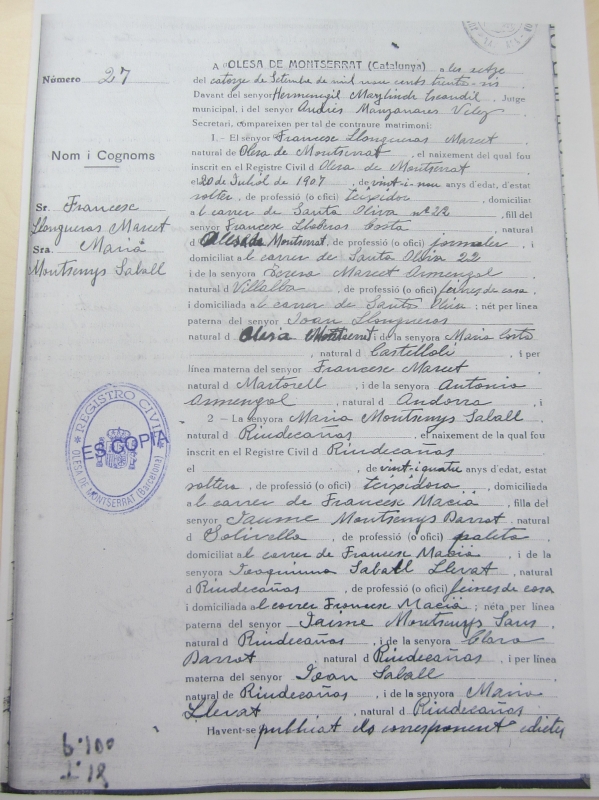 Número 27
Nom i Cognoms
Sr. Francesc
Llongueras Marcet
Sra. Maria
Montsenys Saball
REGISTRO CIVIL
ES COPIA
OLESA DE MONTSERRAT (Barcelona)
A OLESA DE MONTSERRAT (Catalunya) a les setze
del catorze de Setembre de mil nou cents trenta-sis
Davant del senyor Hermenegil , Jutge
municipal, i del senyor Andrés Manzanares Vilez
Secretari, compareixen per tal de contraure matrimoni:
1.- El senyor Francesc Llongueras Marcet
natural de Olesa de Montserrat, el naixement del qual fou
inscrit en el Registre Civil d Olesa de Montserrat
el 20 de Juliol de 1907, de vint-i-nou anys d'edat, d'estat
solter, de professió (o ofici) teixidor, domiciliat
al carrer de Santa Oliva nº 22, fill del
senyor Francesc Costa, natural
d Olesa de Montserrat, de professió (o ofici) jornaler, i
domiciliat al carrer de Santa Oliva 22
i de la senyora Teresa Marcet Armengol
natural d Villalba, de professió (o ofici) feines de casa
i domiciliada al carrer de Santa Oliva; nét per línea
paterna del senyor Joan Llongueras
natural d Olesa Montserrat i de la senyora Maria Costa
, natural d Castellolí, i per
línea materna del senyor Francesc Marcet
natural d Martorell, i de la senyora Antonia
Armengol, natural d Andorra, i
2 - La senyora Maria Montsenys Saball
natural d Riudecañas, el naixement de la qual fou
inscrit en el Registre Civil d Riudecañas
el , de vint-i-quatre anys d'edat, estat
soltera, de professió (o ofici) teixidora, domiciliada
al carrer de Francesc Macià, filla del
senyor Jaume Montsenys Barrat, natural
d Solivella, de professió (o ofici) paleta,
domiciliat al carrer de Francesc Macià, i de la
senyora Joaquima Saball Llevat, natural
d Riudecañas, de professió (o ofici) feines de casa
i domiciliada al carrer Francesc Macià; néta per línea
paterna del senyor Jaime Montsenys Sans
natural d Riudecañas, i de la senyora Clara
Barrat, natural d Riudecañas, i per línea
materna del senyor Joan Saball
natural de Riudecañas, i de la senyora Maria
Llevat, natural d Riudecañas
Havent-se publicat els corresponent edictes